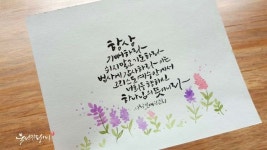 항상
기뻐하라~
쉬지말고 기도하라~
범사에 감사하라~ 이는
그리스도 예수 안에서
너희를 향하신
하나님의 뜻이니라~